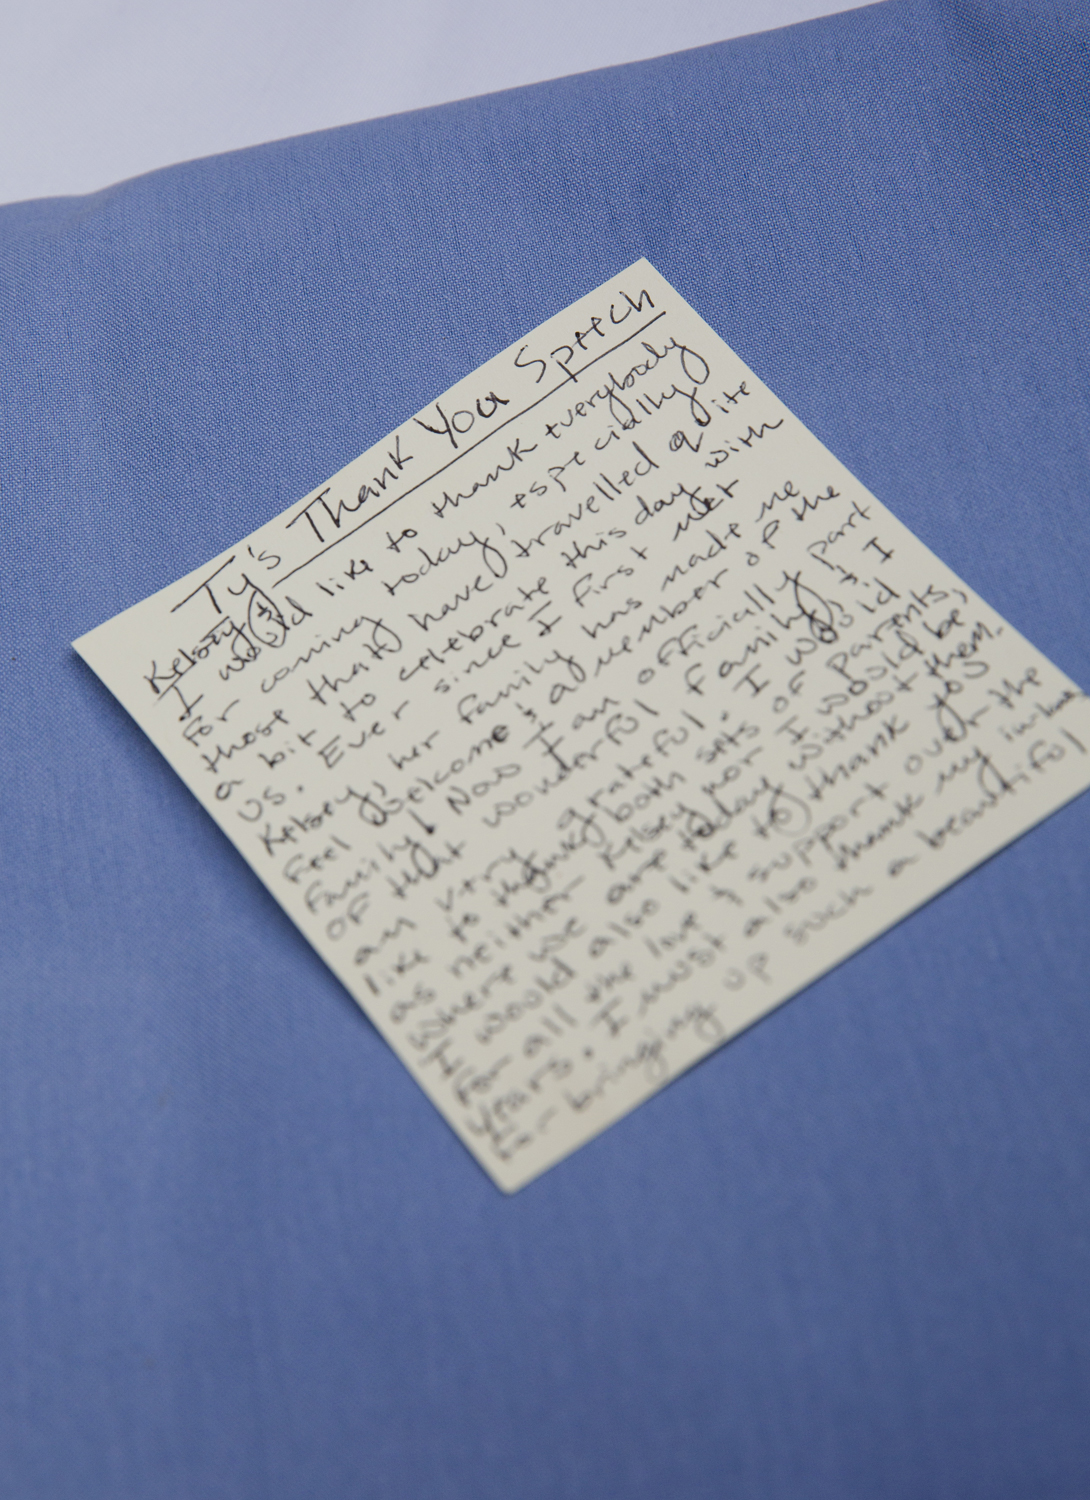 Ty's Thank You Speech
Kelsey &
I would like to thank everybody
for coming today, especially
those that have travelled q ite
a bit to celebrate this day with
us. Ever since I first met
Kelsey, her family has made me
feel welcome & a member of the
family! Now I am officially part
of that wonderful family, & I
am very grateful. I would
like to thank both sets of parents,
as neither Kelsey nor I would be
where we are today without them.
We would also like to thank you
for all the love & support over the
years. I must also thank my in-laws
for bringing up such a beautiful